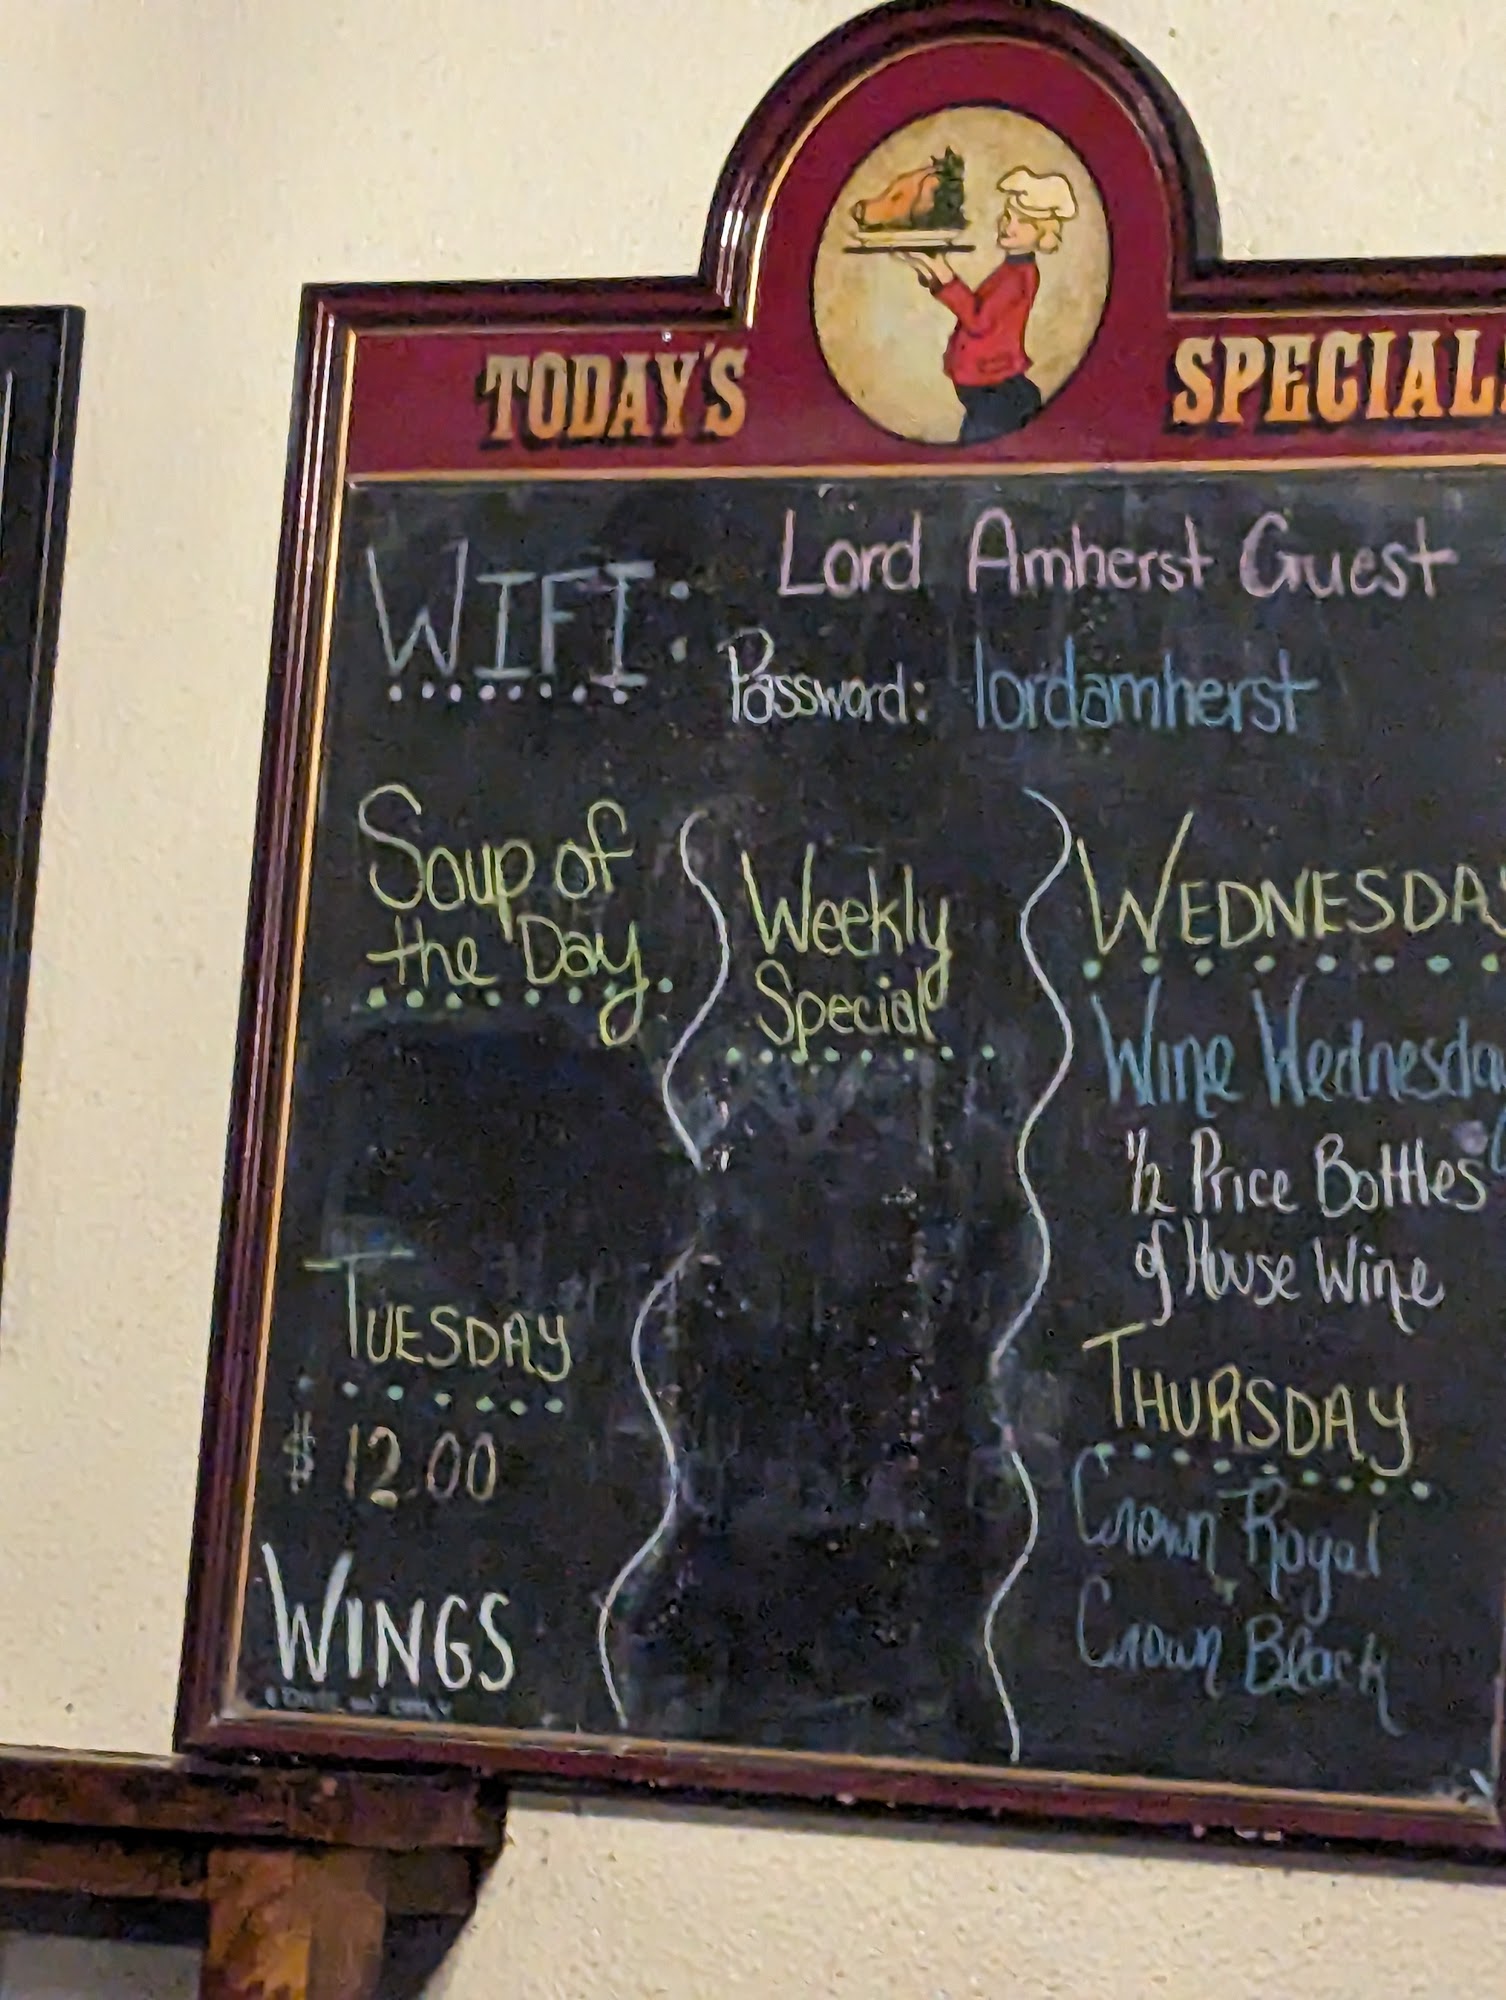 TODAY'S SPECIAL
WIFI: Lord Amherst Guest
Password: lordamherst
Soup of
the Day
TUESDAY
$12.00
WINGS
Weekly
Special
WEDNESDAY
Wine Wednesday
1/2 Price Bottles
of House Wine
THURSDAY
Crown Royal
Crown Black